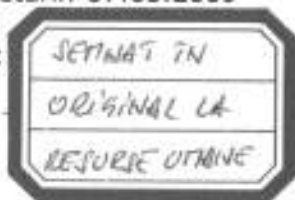 SEMNAT IN
ORIGINAL LA
RESURSE UMANE